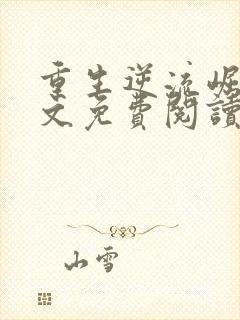 重生逆流崛
文免費閱讀
山雪